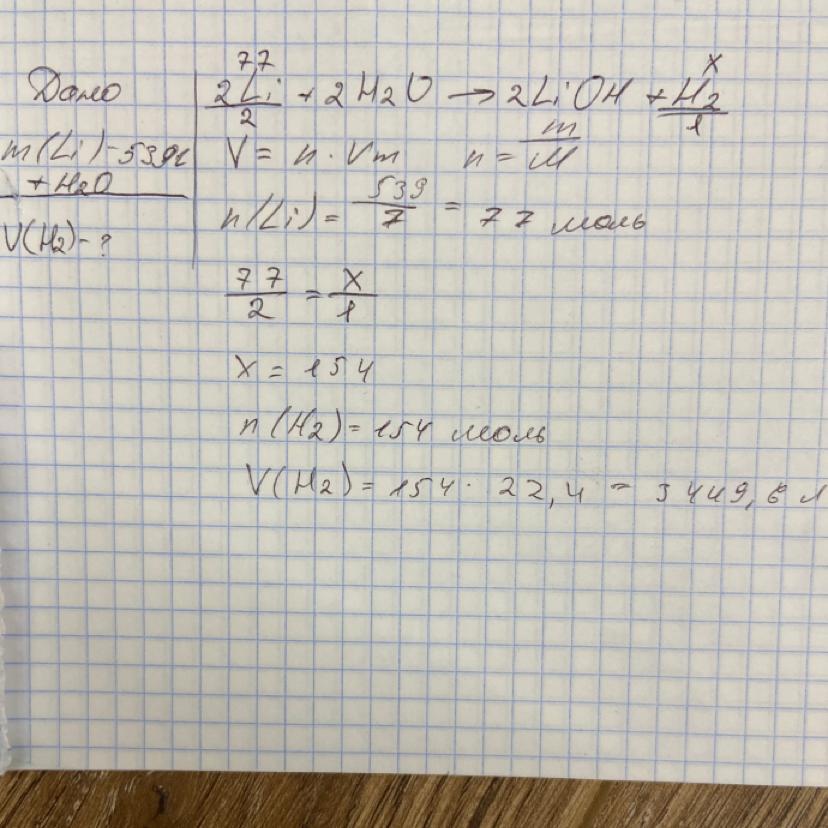 Дано
m(Li)-539г
+ H2O
V(H2)-?
77 x
2Li + 2H2O → 2LiOH + H2
2 1
V = n · Vm n = m/M
n(Li) = 539/7 = 77 моль
77/2 = x/1
x = 154
n(H2) = 154 моль
V(H2) = 154 · 22,4 = 3449,6 л